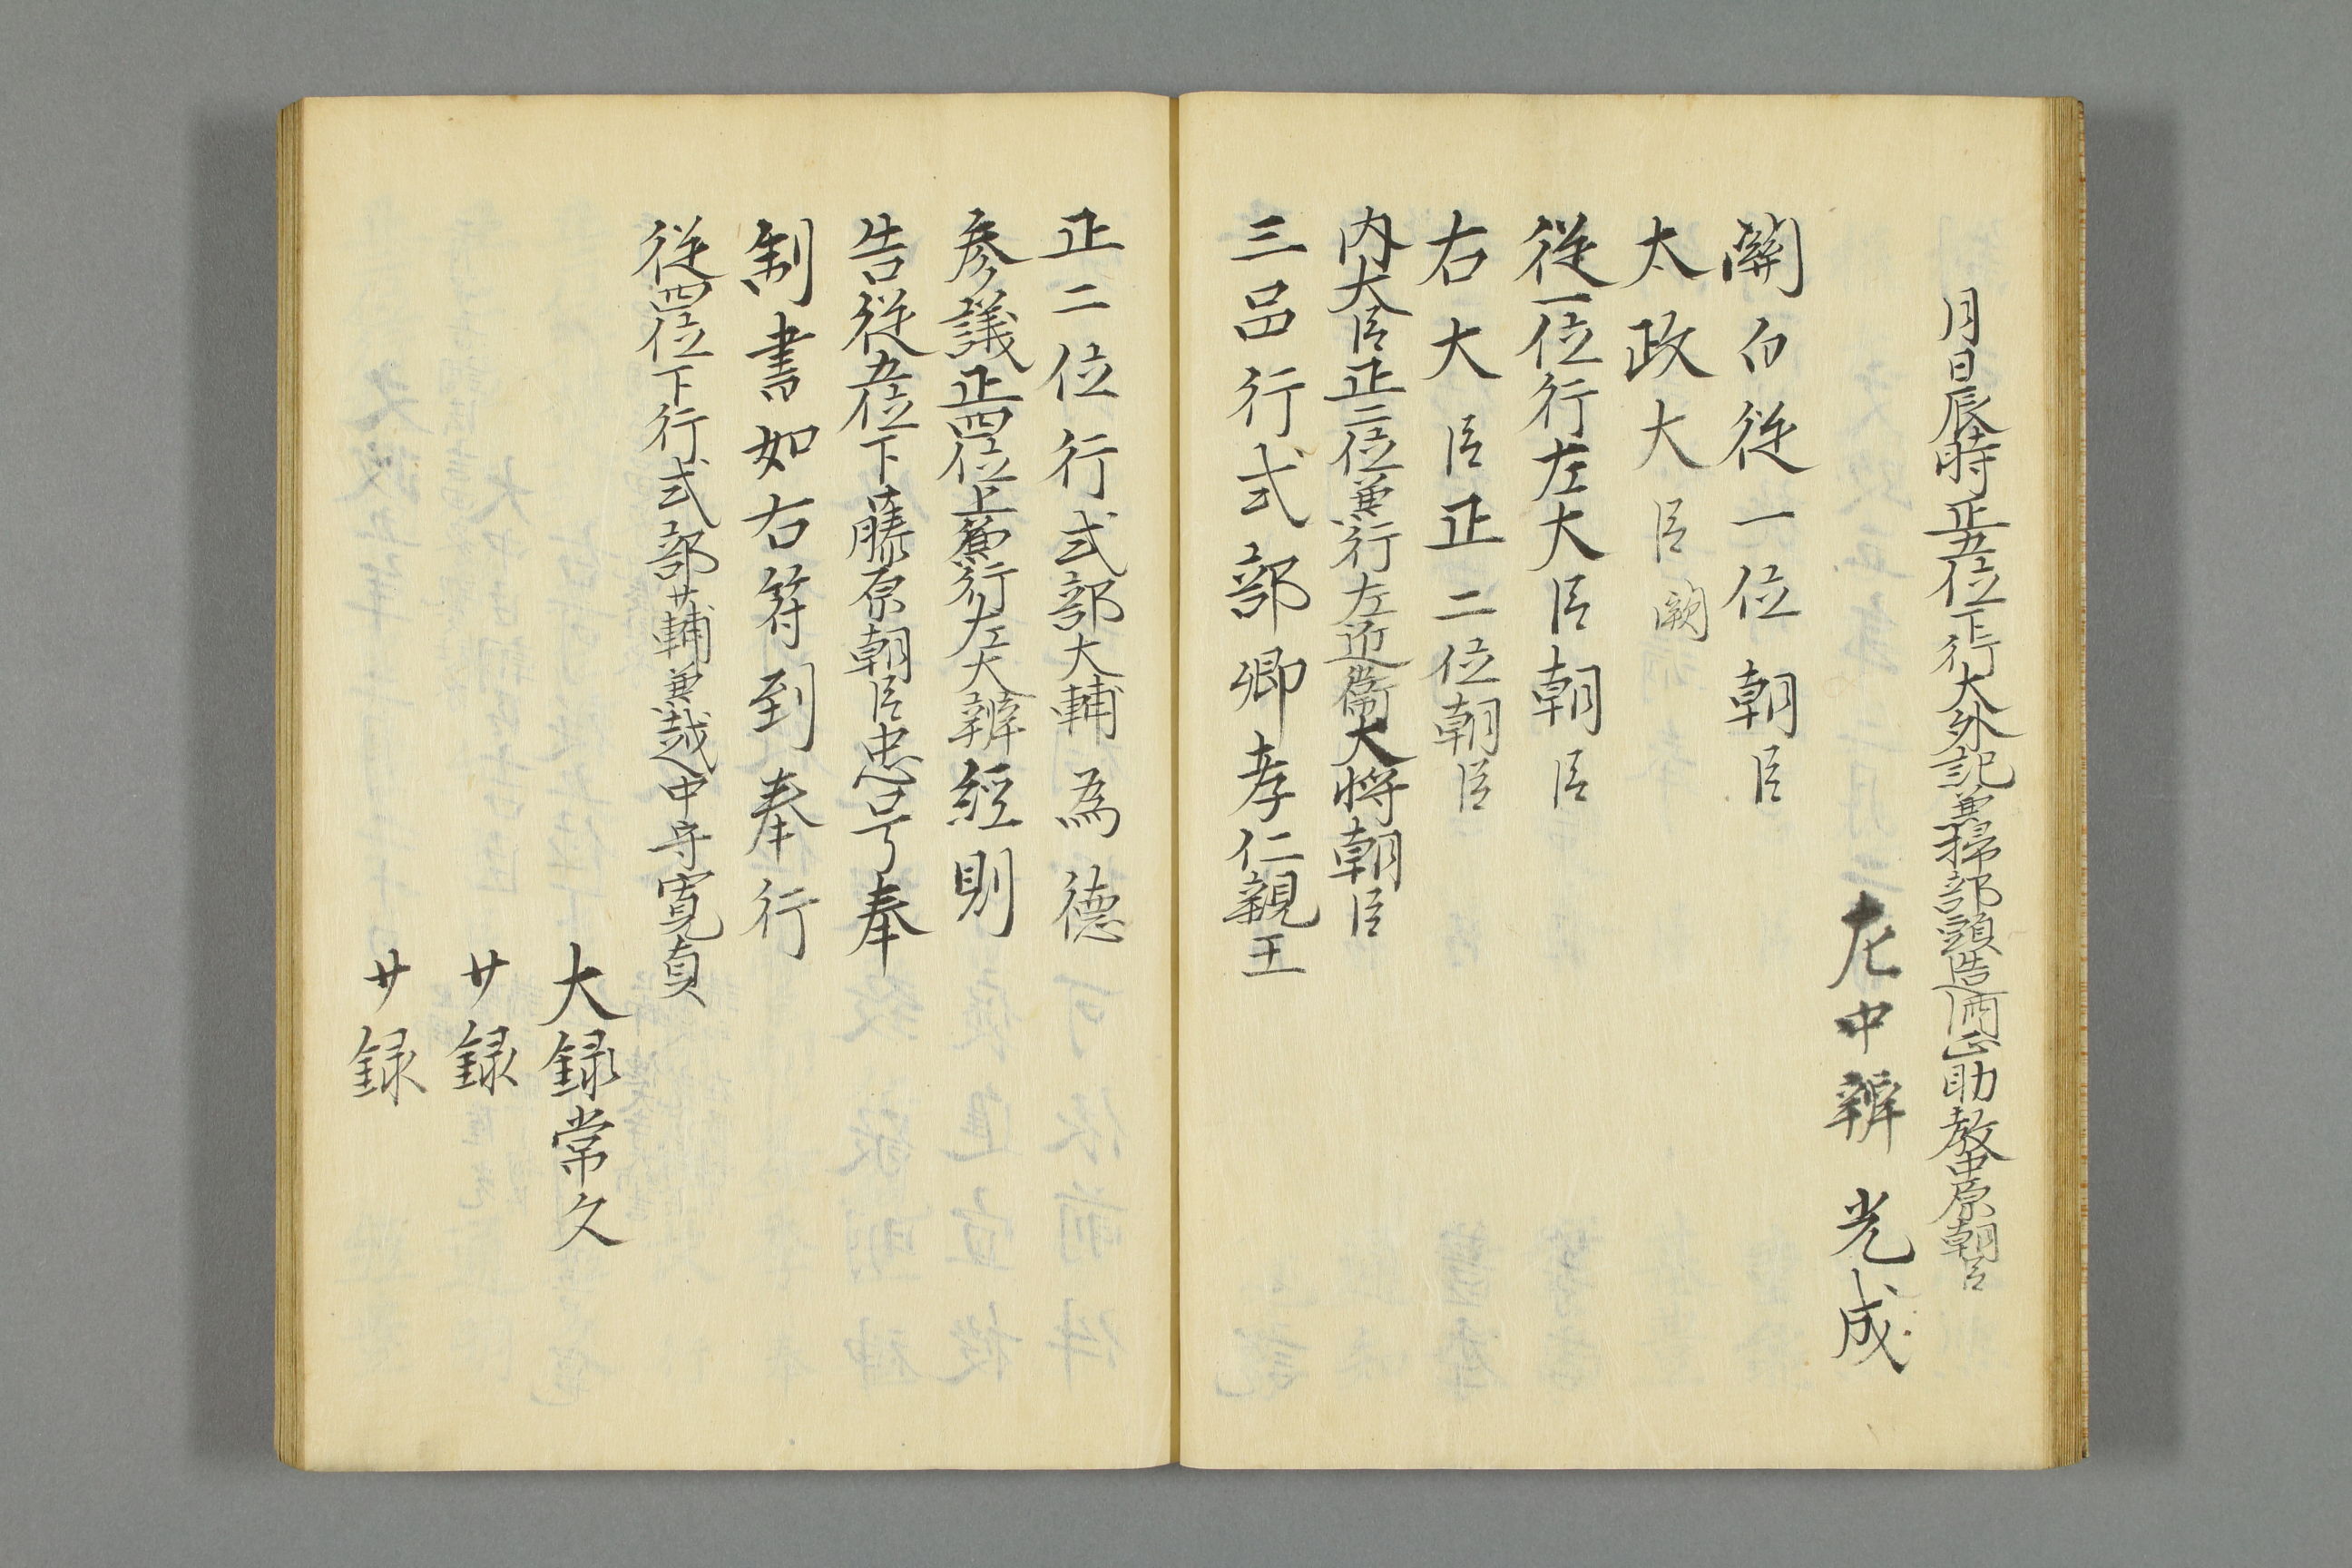 月日辰時正五位下行大外記兼掃部頭造酒正助教中原朝臣
左中辨光成
關白従一位朝臣
太政大臣闕
従一位行左大臣朝臣
右大臣正二位朝臣
内大臣正二位兼行左近衛大将朝臣
三品行式部卿孝仁親王
正二位行式部大輔為徳
参議正四位上兼行左大辨経則
告従五位下藤原朝臣忠号奉
制書如右符到奉行
従四位下行式部少輔兼越中守寛貞
大録常久
少録
少録